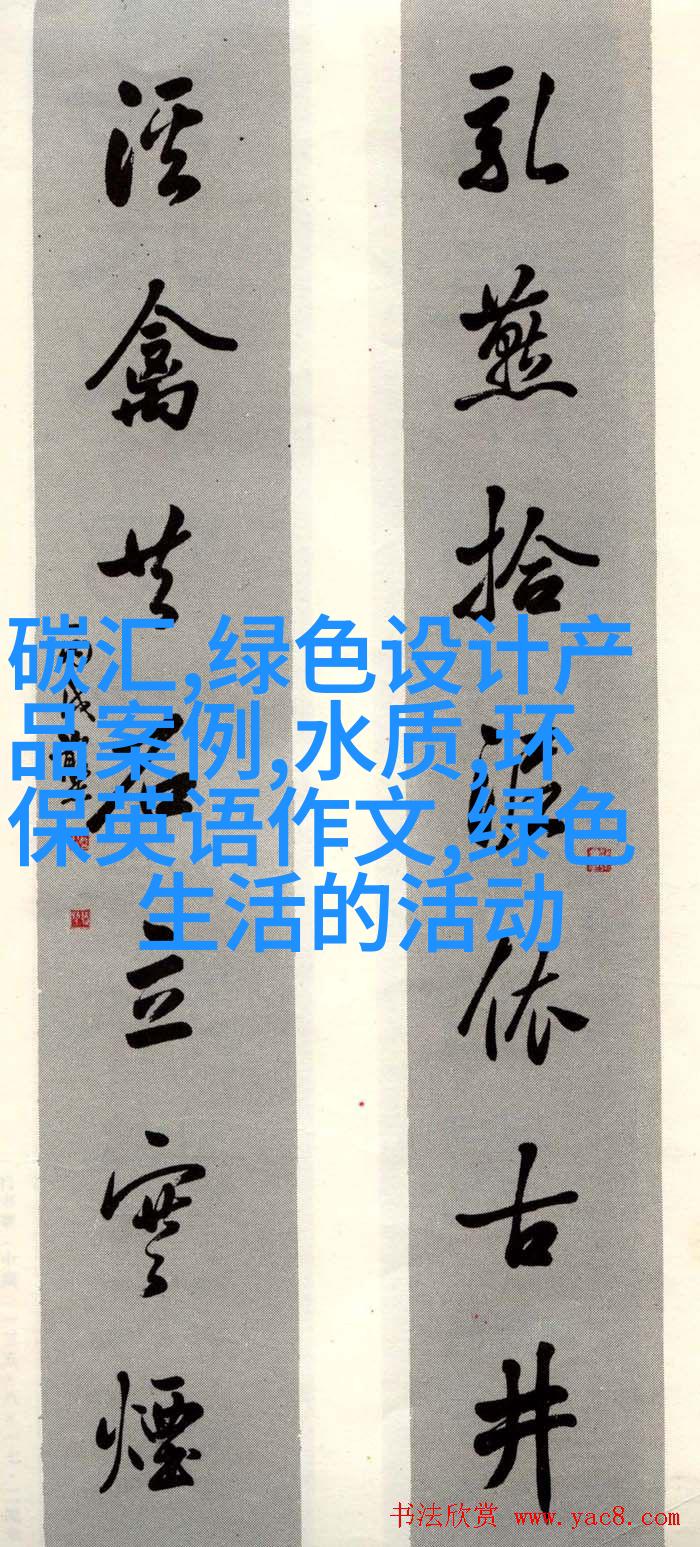 乳燕拾泥依古井
溪禽共立寒煙
碳汇,绿色设计产
品案例,水质,环
保英语作文,绿色
生活的活动
书法欣赏 www.yac8.com